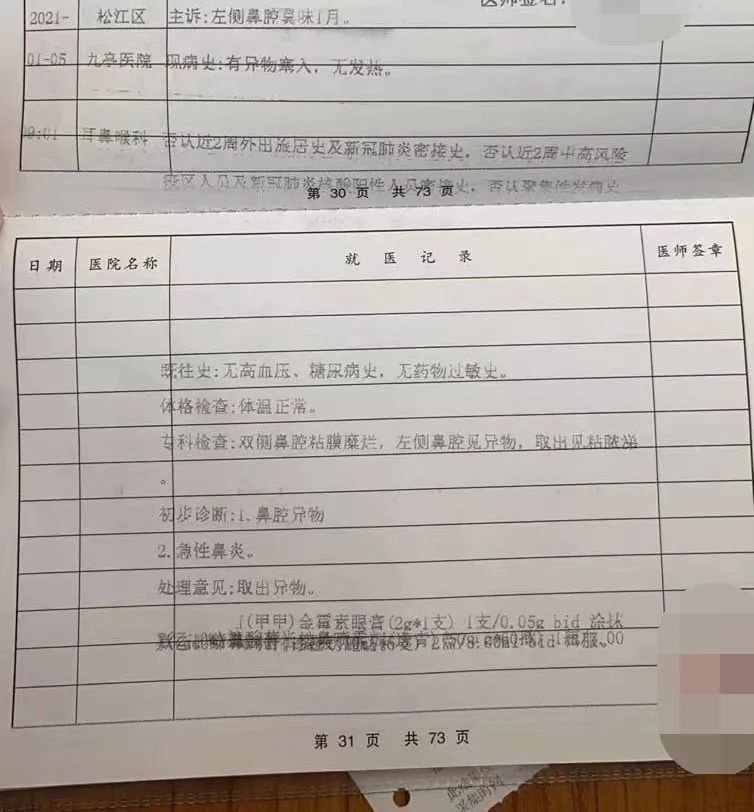 医师签名:
2021- 松江区 主诉:左侧鼻腔臭味1月。
01-05 九亭医院 现病史:有异物塞入，无发热。
09:01 耳鼻喉科 否认近2周外出旅居史及新冠肺炎密接史，否认近2周中高风险
疫区人员及新冠肺炎核酸阳性人员密接史，否认聚集性发病史
第 30 页 共 73 页
日期 医院名称 就 医 记 录 医师签章
既往史:无高血压、糖尿病史，无药物过敏史。
体格检查:体温正常。
专科检查:双侧鼻腔粘膜糜烂，左侧鼻腔见异物，取出见粘脓涕
。
初步诊断:1.鼻腔异物
2.急性鼻炎。
处理意见:取出异物。
(甲甲)金霉素眼膏(2g*1支) 1支/0.05g bid 涂抹
第 31 页 共 73 页